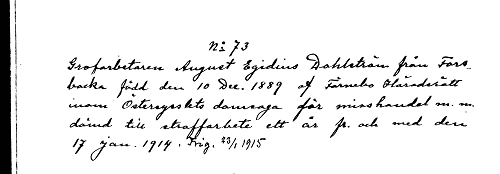 No 73
Grofarbetaren August Egidius Dahlström från Fors-
backa född den 10 Dec. 1889 af Färnebo Häradsrätt
inom Östersysslets domsaga för misshandel m. m.
dömd till straffarbete ett år fr. och med den
17 jan. 1914. Frig. 23/1 1915